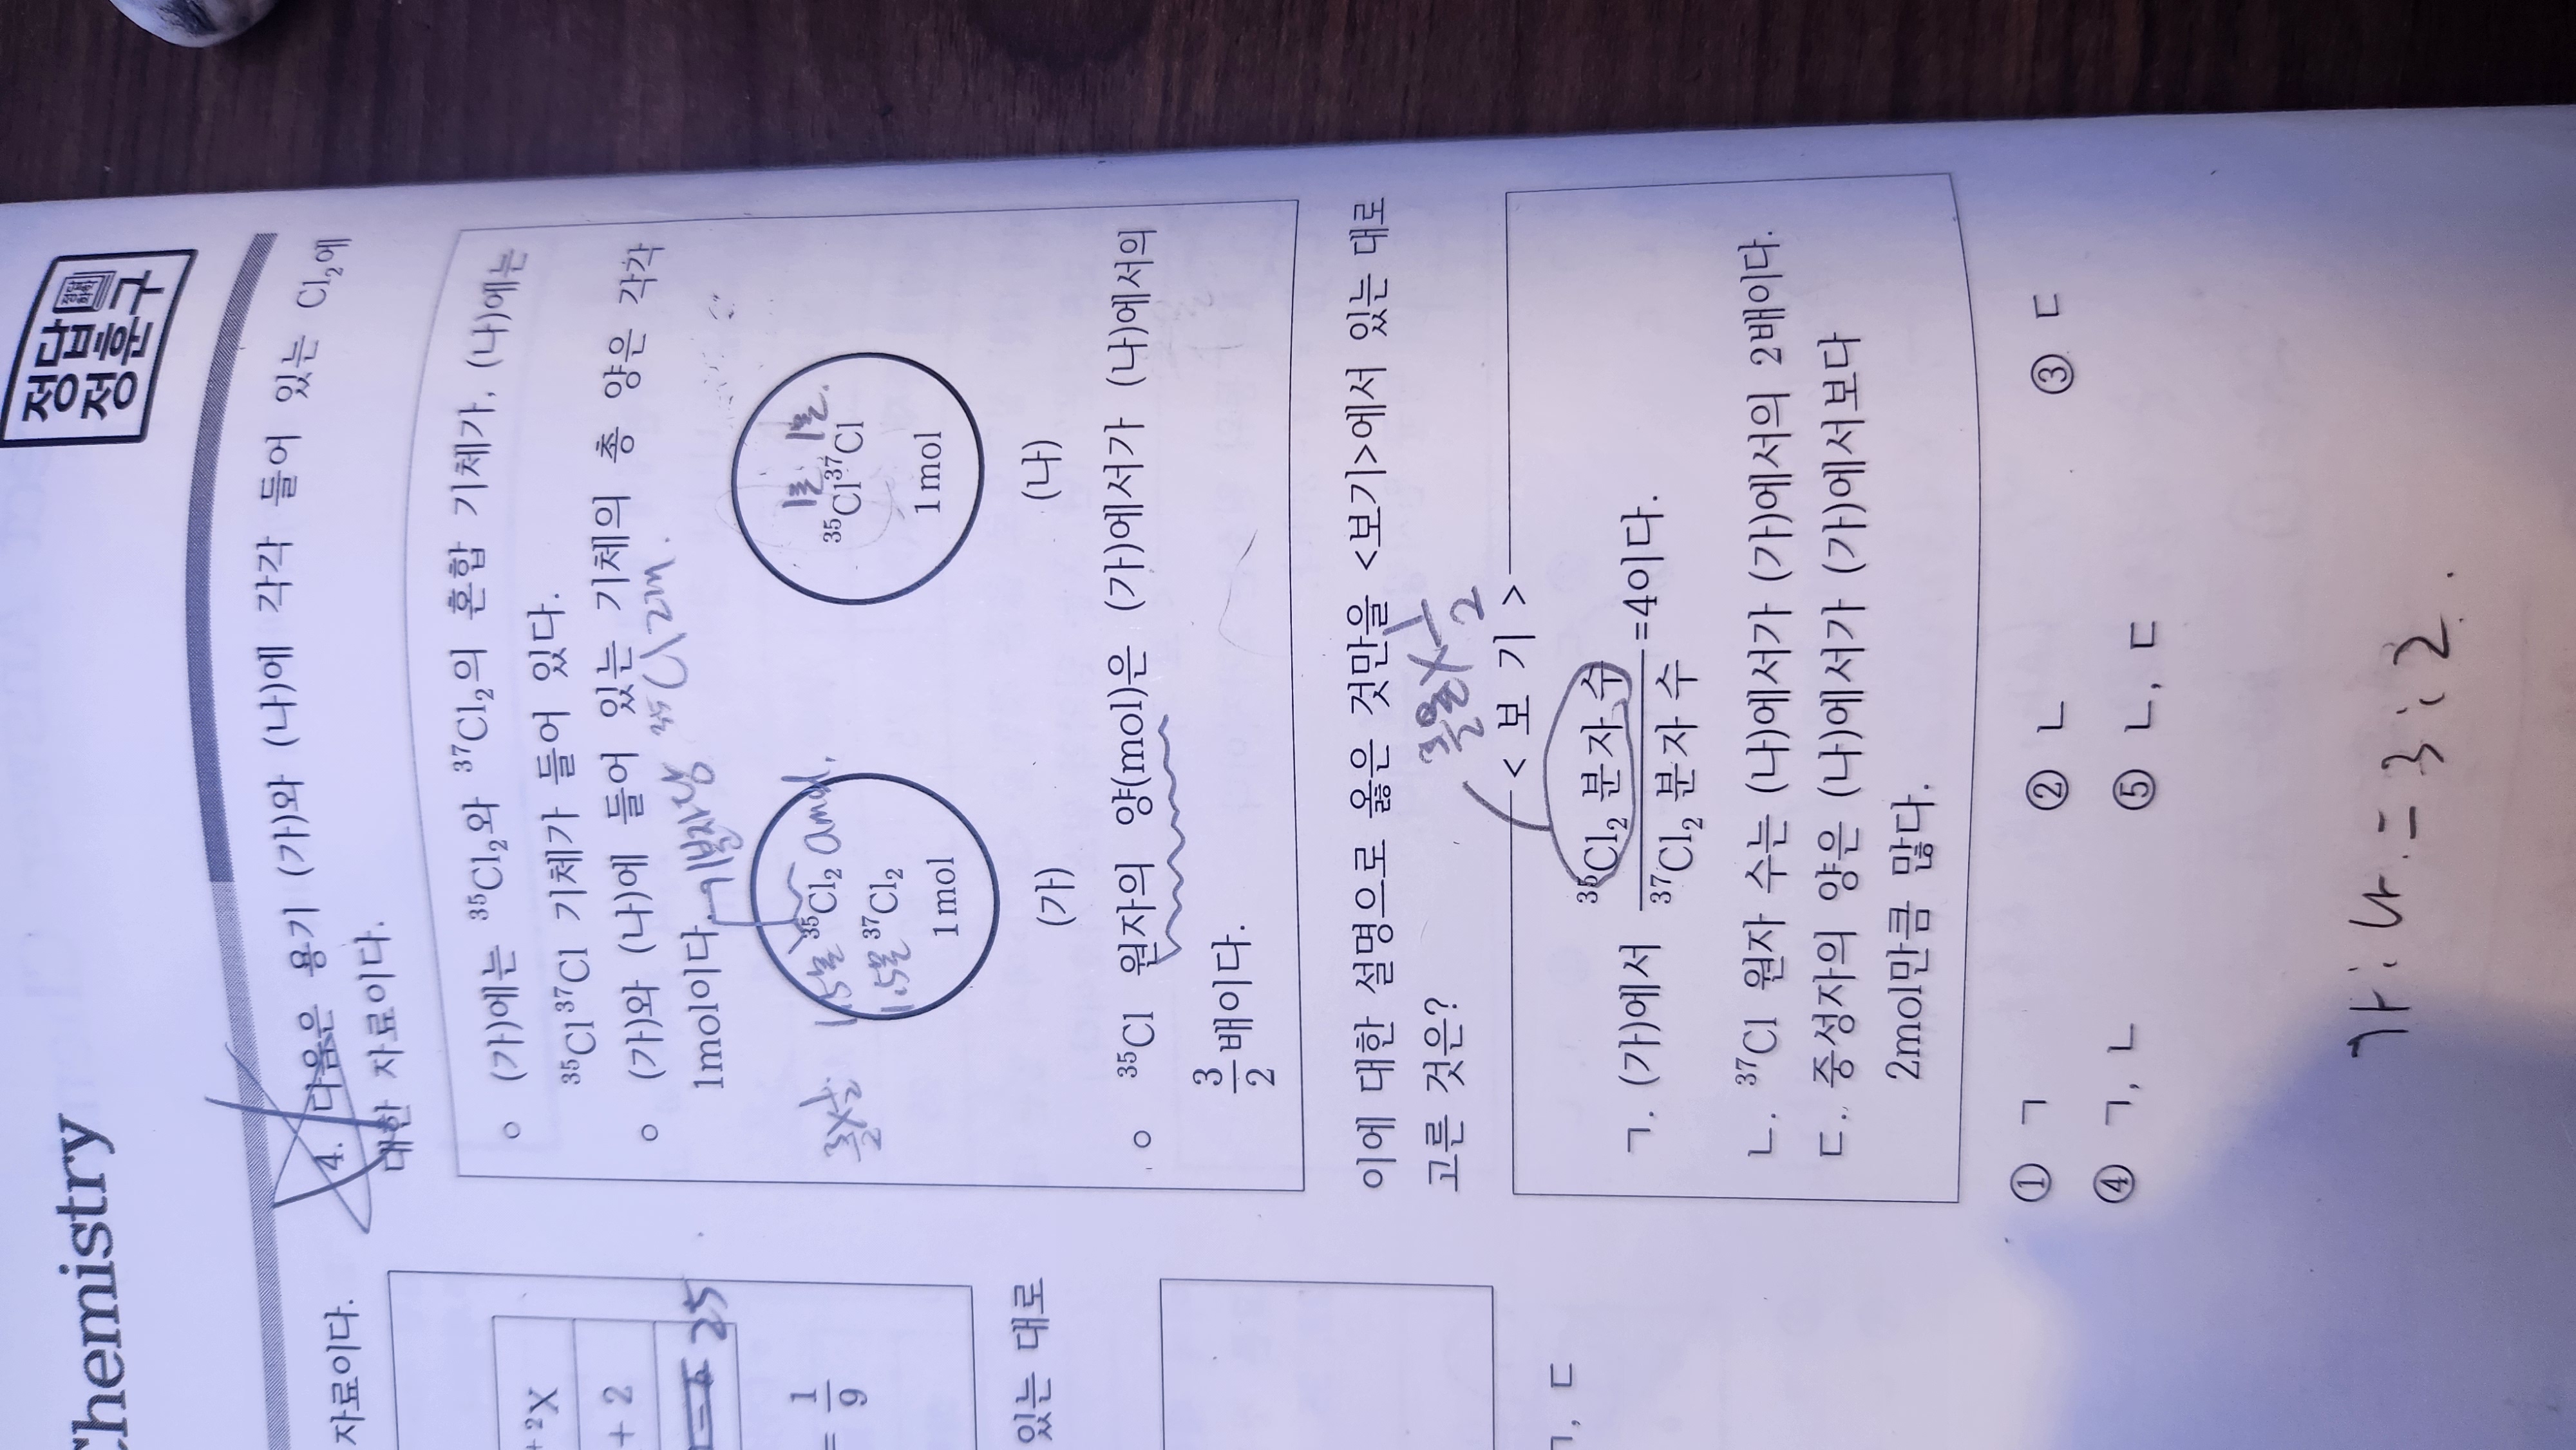 Chemistry
정답
정훈구
4. 다음은 용기 (가)와 (나)에 각각 들어 있는 Cl₂에
대한 자료이다.
○ (가)에는 ³⁵Cl₂와 ³⁷Cl₂의 혼합 기체가, (나)에는
³⁵Cl³⁷Cl 기체가 들어 있다.
○ (가)와 (나)에 들어 있는 기체의 총 양은 각각
1mol이다.
³⁵Cl₂ amol.
³⁷Cl₂
1mol
(가)
1몰 1몰.
³⁵Cl³⁷Cl
1mol
(나)
3/2 × 1/2
1.5몰
1.5몰
○ ³⁵Cl 원자의 양(mol)은 (가)에서가 (나)에서의
3/2배이다.
이에 대한 설명으로 옳은 것만을 <보기>에서 있는 대로
고른 것은?
<보 기>
ㄱ. (가)에서 ³⁵Cl₂ 분자 수/³⁷Cl₂ 분자 수=4이다.
ㄴ. ³⁷Cl 원자 수는 (나)에서가 (가)에서의 2배이다.
ㄷ. 중성자의 양은 (나)에서가 (가)에서보다
2mol만큼 많다.
① ㄱ ② ㄴ ③ ㄷ
④ ㄱ, ㄴ ⑤ ㄴ, ㄷ
가 : 나 = 3 : 2.
자료이다.
+2X
+2
25
= 1/9
있는 대로
ㄱ, ㄷ